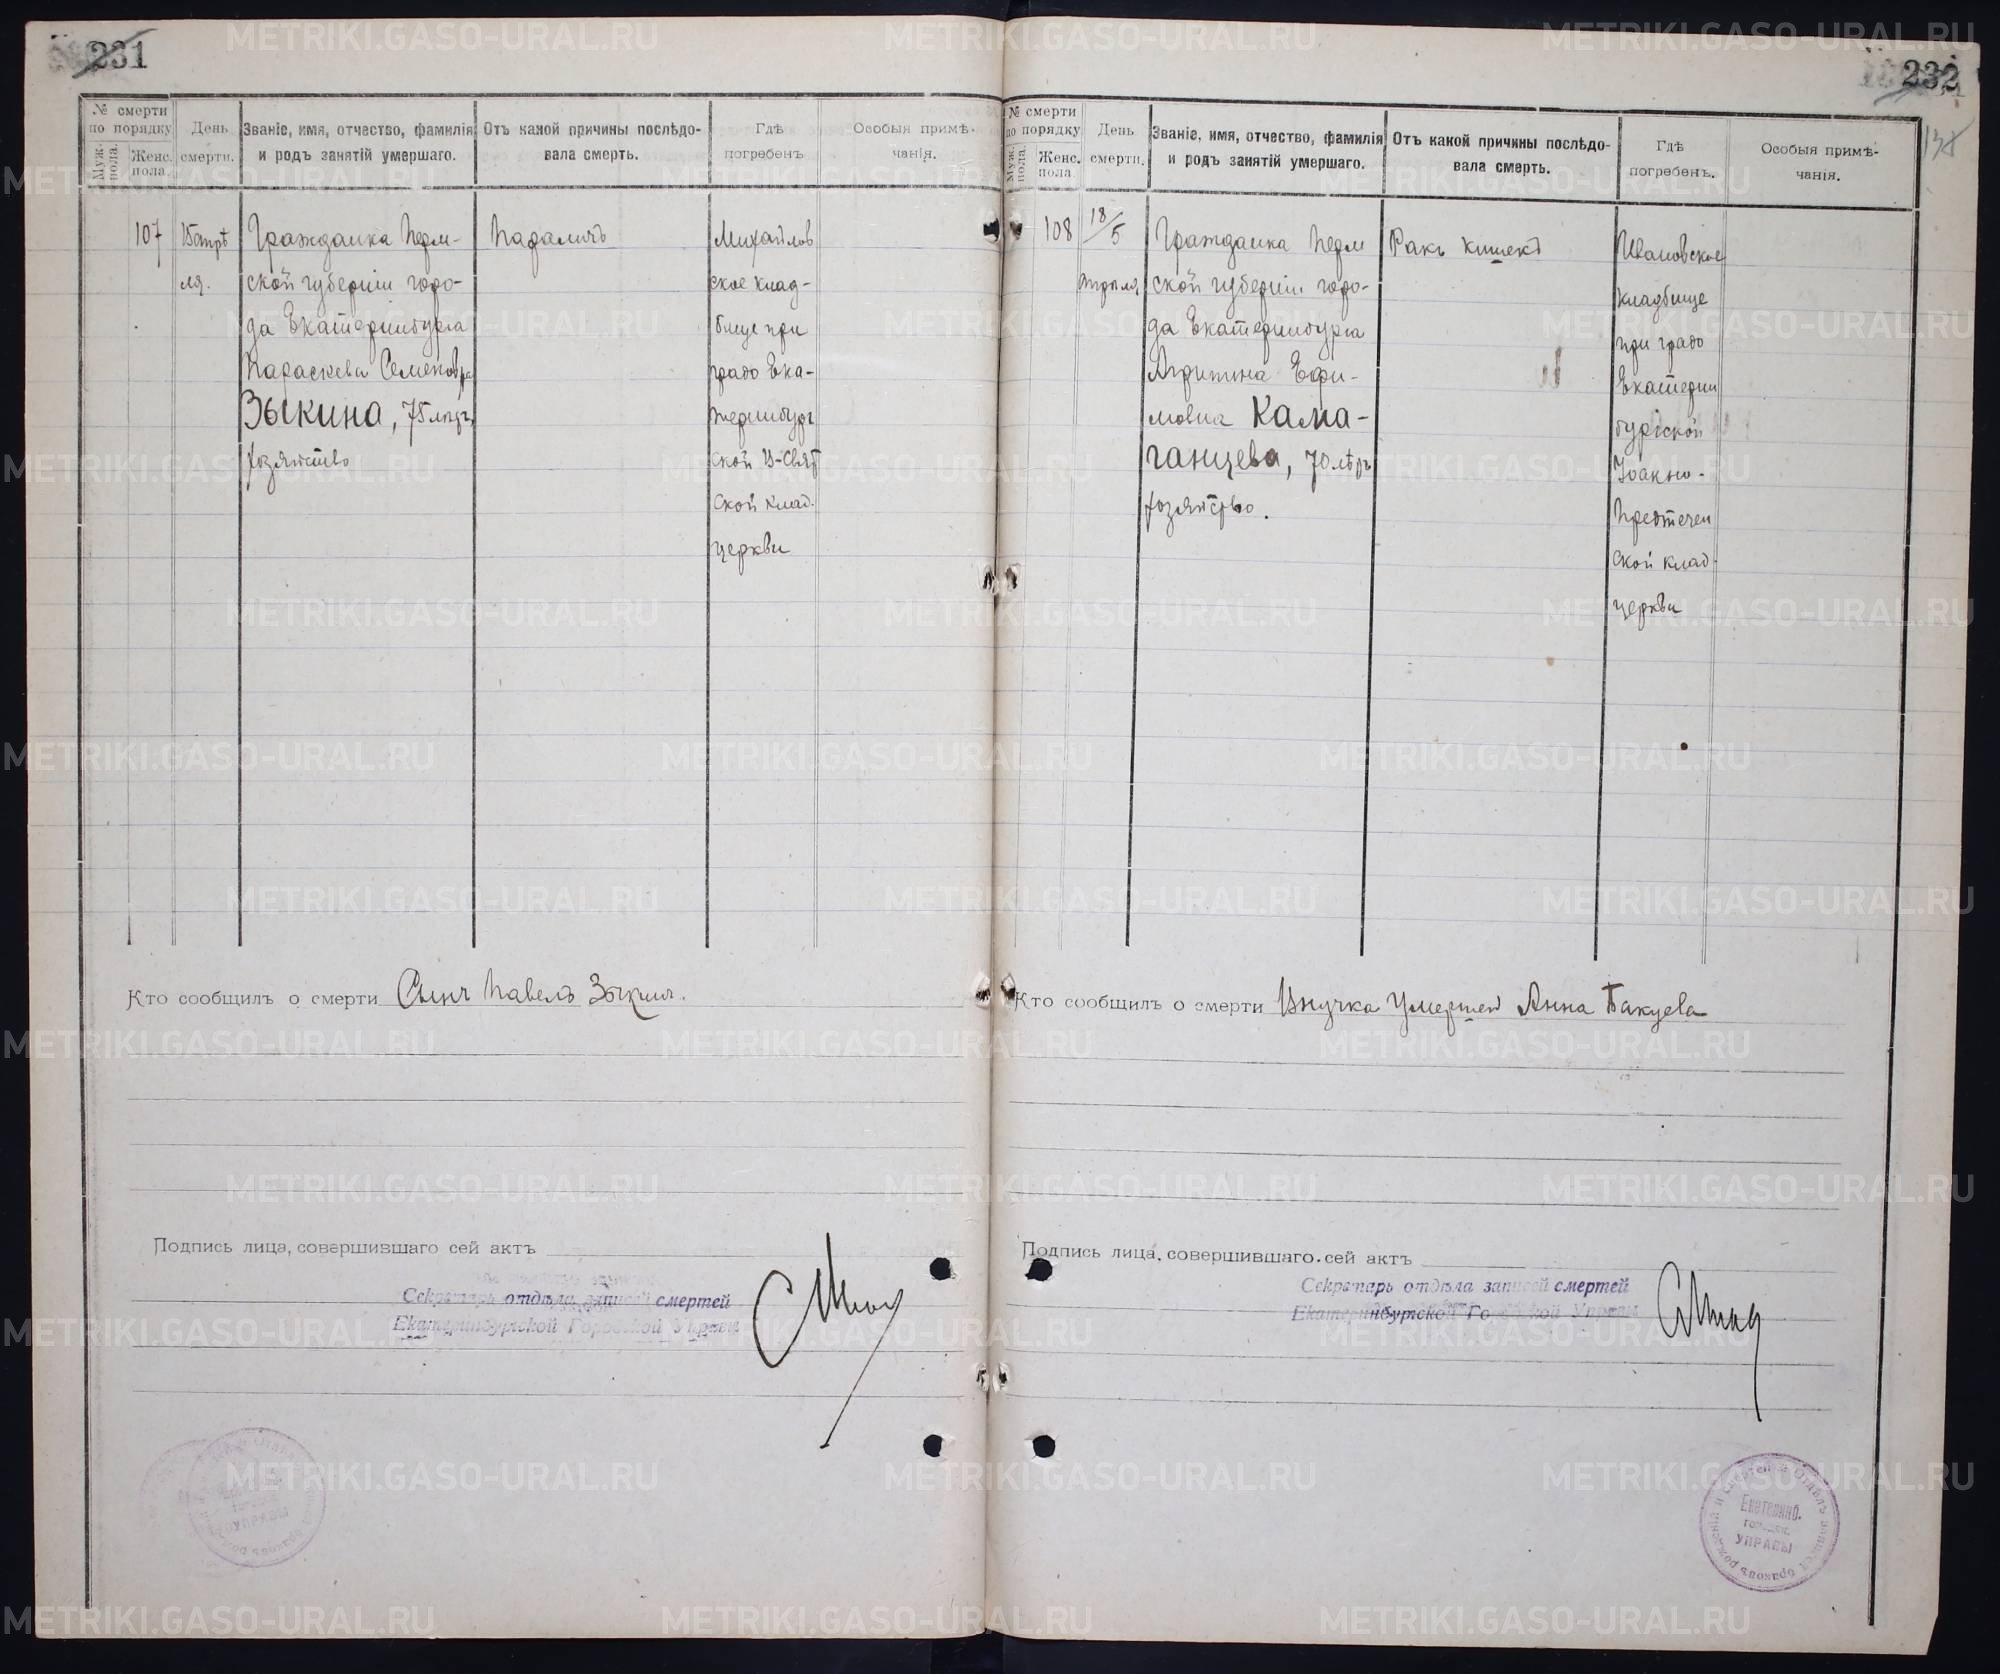 231
№ смерти
по порядку
Муж.
пола.
Женс.
пола.
День
смерти.
Званіе, имя, отчество, фамилія
и родъ занятій умершаго.
Отъ какой причины послѣдо-
вала смерть.
Гдѣ
погребенъ
Особыя примѣ-
чанія.
107
15 апрѣ
ля.
Гражданка Перм-
ской губерніи горо-
да Екатеринбурга
Параскева Семеновна
Зыкина, 75 лѣтъ,
хозяйство
Параличъ
Михайлов
ское клад-
бище при
градо Ека-
теринбург
ской В-Свят
ской клад.
церкви
Кто сообщилъ о смерти Сынъ Павелъ Зыкин.
Подпись лица, совершившаго сей актъ
Секретарь отдѣла записей смертей
Екатеринбургской Городской Управы
УПРАВЫ
232
138
№ смерти
по порядку
Муж.
пола.
Женс.
пола.
День
смерти.
Званіе, имя, отчество, фамилія
и родъ занятій умершаго.
Отъ какой причины послѣдо-
вала смерть.
Гдѣ
погребенъ.
Особыя примѣ-
чанія.
108
18/5
апрѣля
Гражданка Перм
ской губерніи горо-
да Екатеринбурга
Агрипина Ефи-
мовна Кама-
ганцева, 70 лѣтъ
хозяйство.
Ракъ кишекъ
Ивановское
кладбище
при градо
Екатерин
бургской
Іоанно-
Предтечен
ской клад.
церкви
Кто сообщилъ о смерти Внучка умершей Анна Бакуева
Подпись лица, совершившаго сей актъ
Секретарь отдѣла записей смертей
Екатеринбургской Городской Управы
Отдѣлъ записи браковъ рожденія и смертей
Екатеринб.
городск.
УПРАВЫ
METRIKI.GASO-URAL.RU